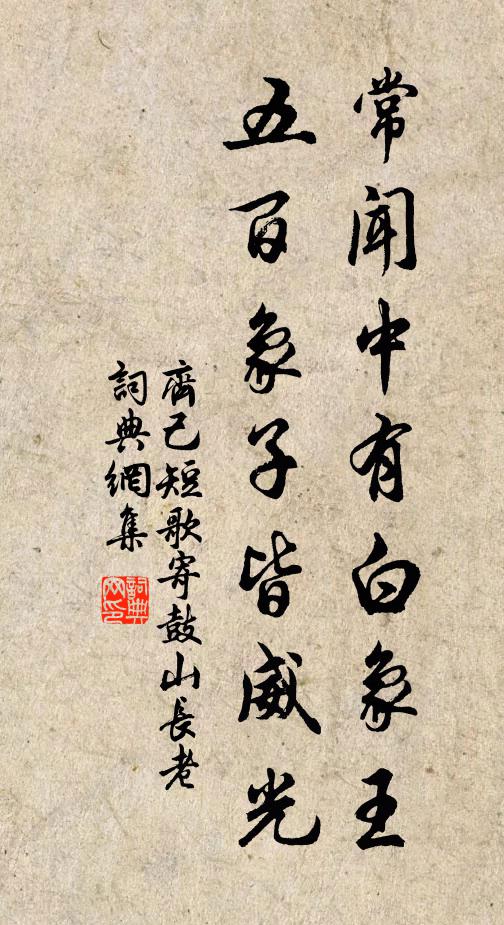 常聞中有白象王
五百象子皆威光
齊己短歌寄鼓山長老
詞典網集
詞典網印